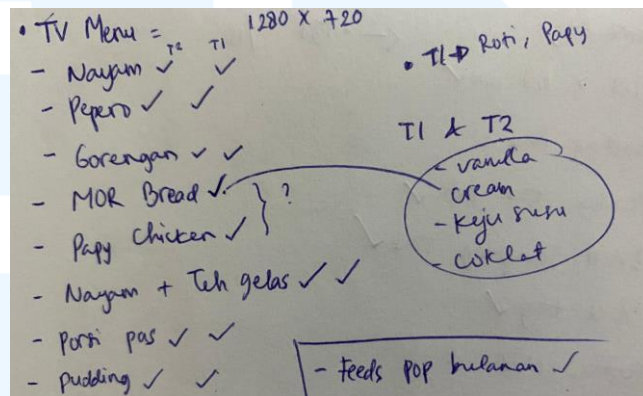 • TV Menu = 1280 x 720
T2 T1
- Nayam ✓ ✓
- Pepero ✓ ✓
- Gorengan ✓ ✓
- MOR Bread ✓
- Papy Chicken ✓ } ?
- Nayam + Teh gelas ✓ ✓
- Porsi pas ✓ ✓
- pudding ✓ ✓
• T1 → Roti, Papy
T1 & T2
- vanilla
cream
- Keju susu
- coklat
- Feeds pop bulanan ✓